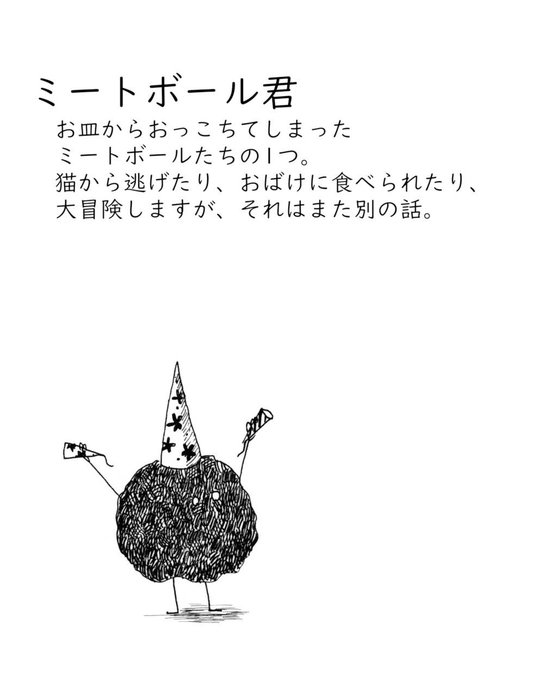 ミートボール君
お皿からおっこちてしまった
ミートボールたちの1つ。
猫から逃げたり、おばけに食べられたり、
大冒険しますが、それはまた別の話。